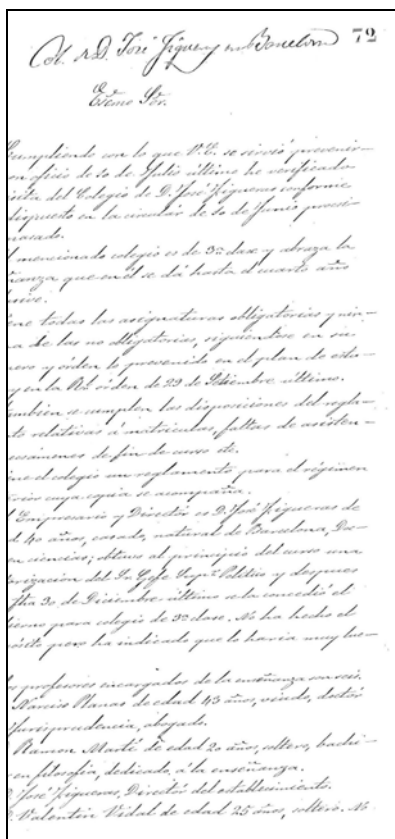 Col. de D. José Figueras en Barcelona 72
Escmo Sor.
Cumpliendo con lo que V.E. se sirvió prevenir-
on oficio de 20 de Julio último he verificado
isita del Colegio de D. José Figueras conforme
dispuesto en la circular de 20 de Junio procsi-
pasado.
l mencionado colegio es de 3ª clase y abraza la
ñanza que en él se dá hasta el cuarto año
usive.
ene todas las asignaturas obligatorias y nin-
a de las no obligatorias, siguiendose en su
ero y órden lo prevenido en el plan de estu-
y en la Rl. órden de 29 de Setiembre último.
ambien se cumplen las disposiciones del regla-
to relativas á matriculas, faltas de asisten-
ecsámenes de fin de curso etc.
ene el colegio un reglamento para el régimen
erior cuya copia se acompaña.
l Empresario y Director es D. José Figueras de
d 40 años, casado, natural de Barcelona, Doc-
en ciencias; obtuvo al principio del curso una
orizacion del Sr. Gefe Supr. Político y despues
fha 30 de Diciembre último se le concedió el
ierno para colegio de 3ª clase. No ha hecho el
ósito pero ha indicado que lo haria muy lue-
s profesores encargados de la enseñanza son seis.
Narciso Planas de edad 43 años, viudo, doctor
Jurisprudencia, abogado.
Ramon Martí de edad 20 años, soltero, bachi-
en filosofía, dedicado á la enseñanza.
José Figueras, Director del establecimiento.
Valentin Vidal de edad 25 años, soltero. No